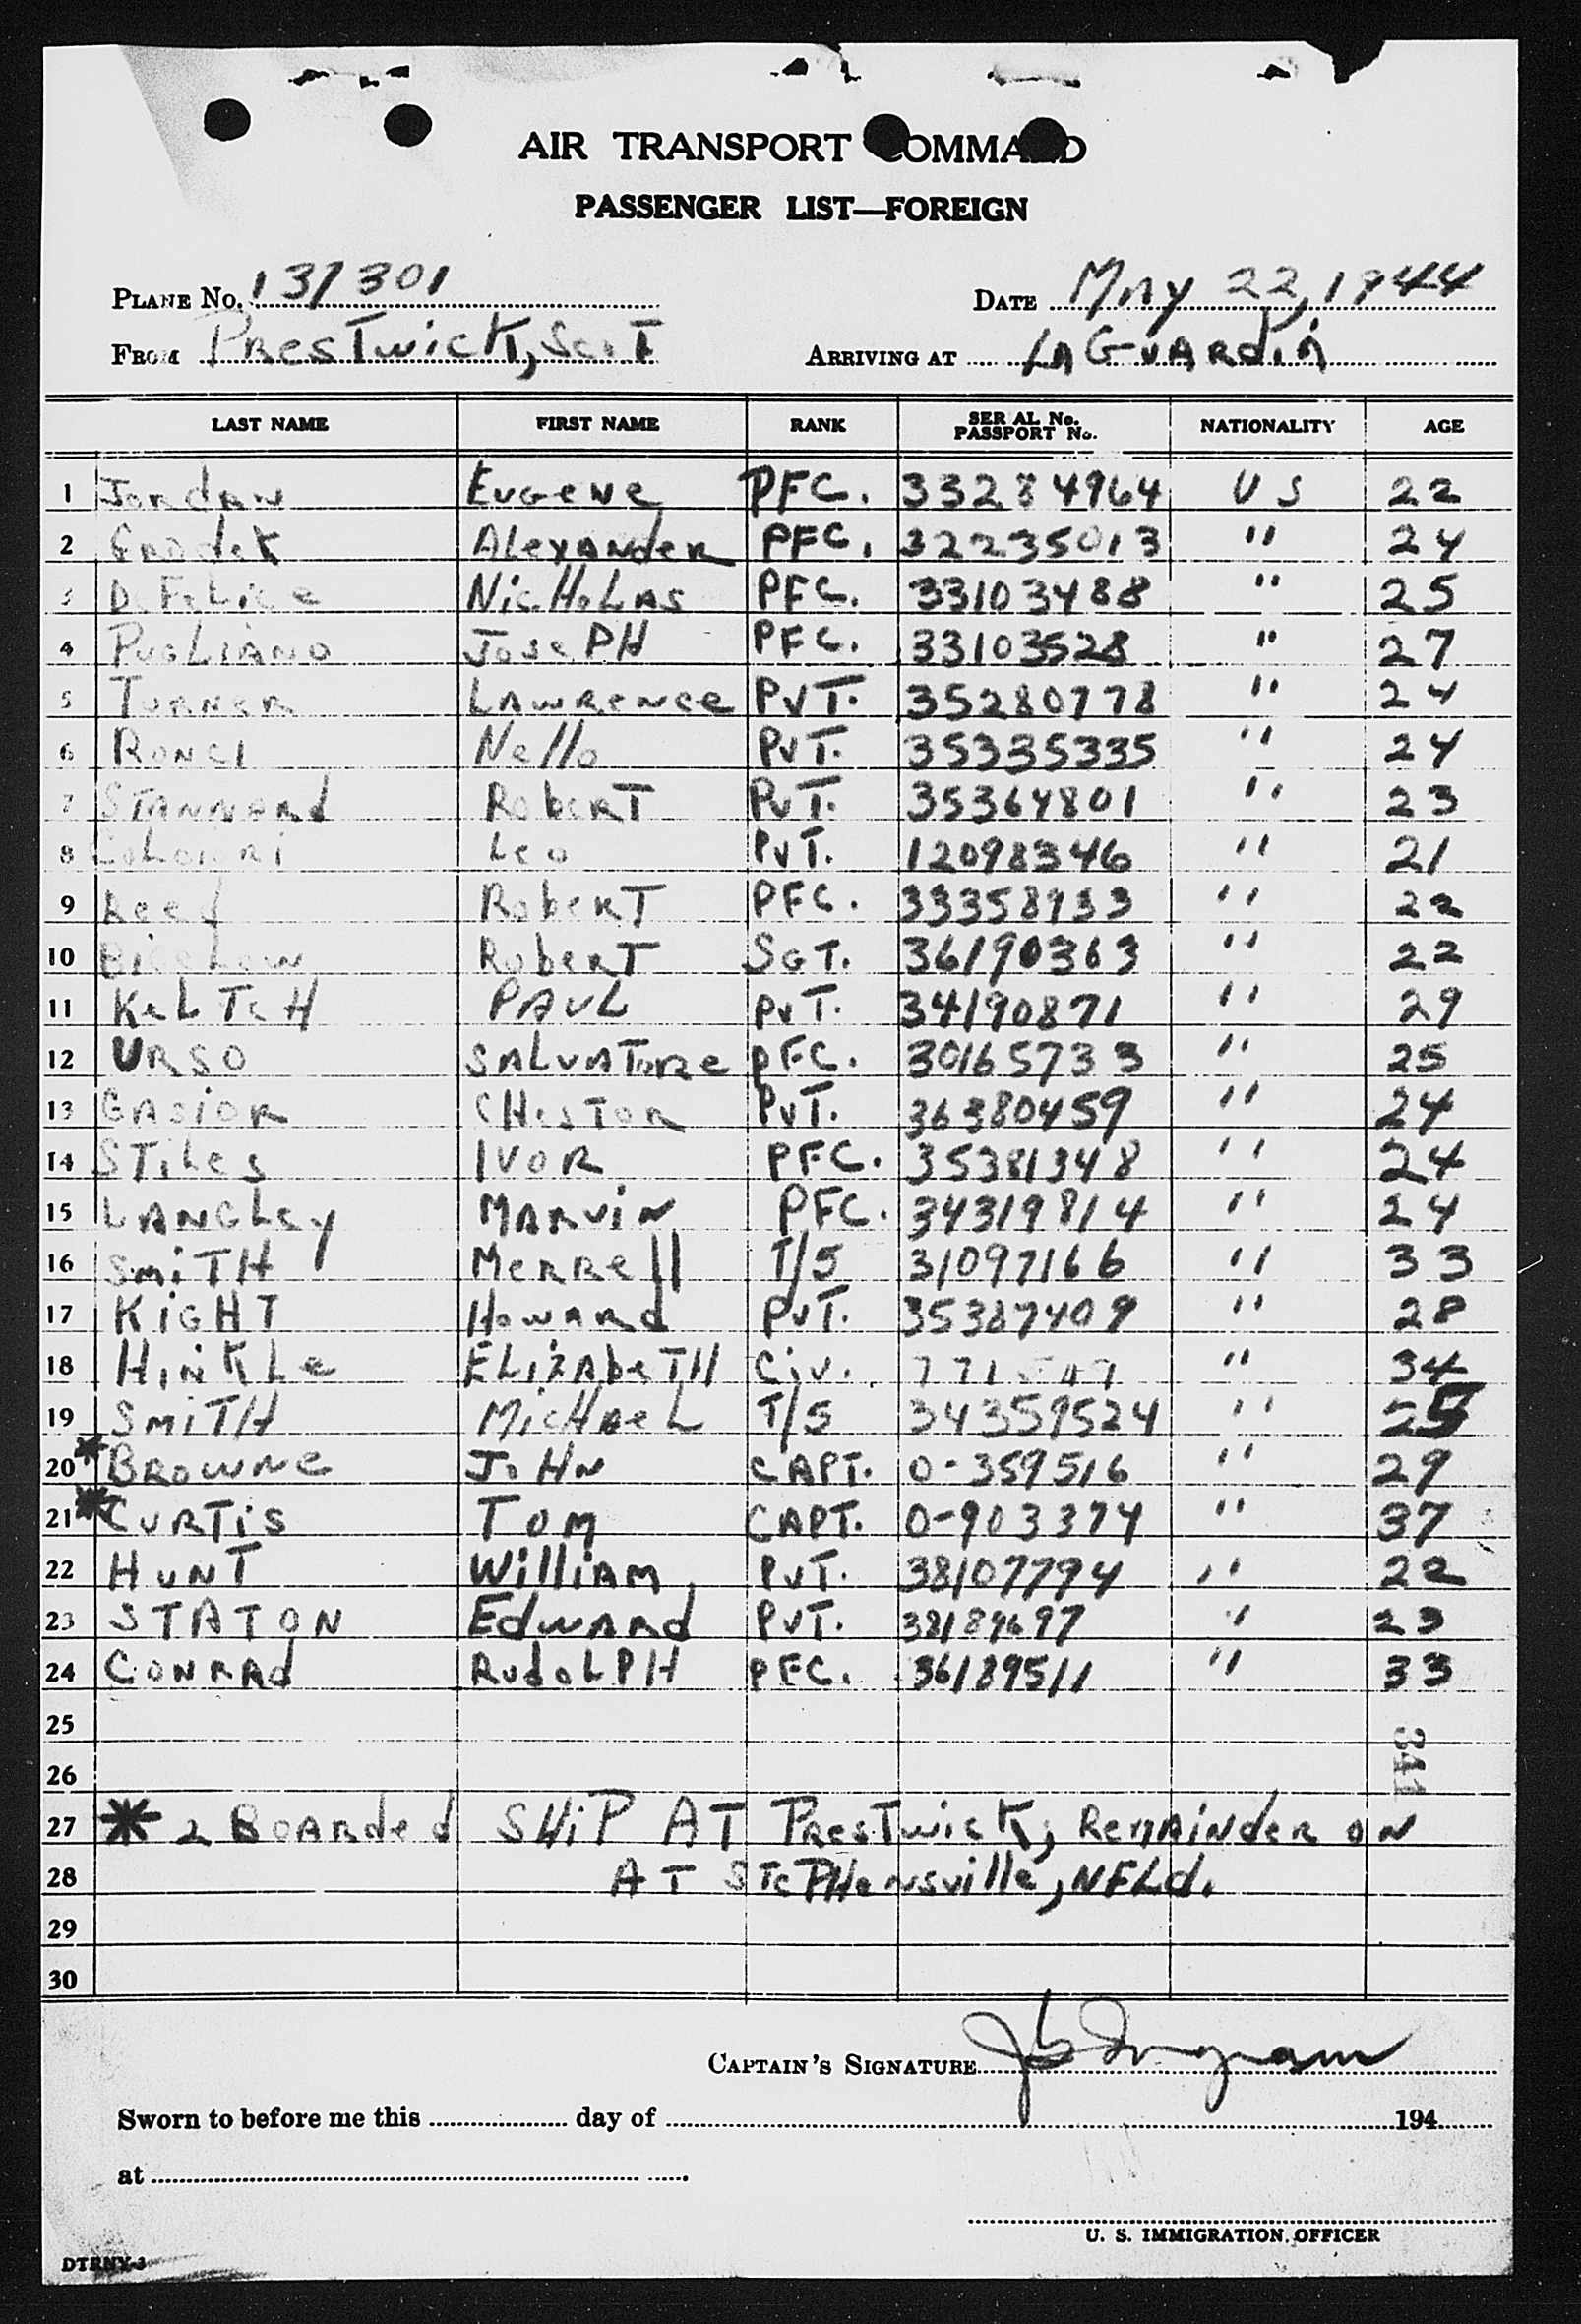 AIR TRANSPORT COMMAND
PASSENGER LIST—FOREIGN
PLANE No. 137301 DATE May 22, 1944
FROM Prestwick, Scot ARRIVING AT LA GUARdiA
LAST NAME FIRST NAME RANK SERIAL No. PASSPORT No. NATIONALITY AGE
1 JordAN EuGeNe PFC. 33284964 U S 22
2 ALexANdeR PFC. 32235013 " 24
3 DeFeLice NicHoLAS PFC. 33103488 " 25
4 PUGLIANO JosePH PFC. 33103528 " 27
5 TURNeR LAWReNce PVT. 35280778 " 24
6 RONCI Nello PvT. 35335335 " 24
7 STANNARd RobeRT PvT. 35364801 " 23
8 Leo PvT. 12098346 " 21
9 Reed RobeRT PFC. 33358933 " 22
10 BigeLow RobeRT SGT. 36190363 " 22
11 KeLTcH PAUL PvT. 34190871 " 29
12 URSO SALVATORe PFC. 30165733 " 25
13 GASioR CHesToR PvT. 36380459 " 24
14 STiLes IVOR PFC. 35381348 " 24
15 LANGLey MARViN PFC. 34319814 " 24
16 SmiTH MeRRell T/5 31097166 " 33
17 KiGHT HowARd PvT. 35387409 " 28
18 HiNKLe ELizAbeTH Civ. " 34
19 SmiTH MicHAeL T/5 34359524 " 25
20 * BROWNe JoHN CAPT. 0-359516 " 29
21 * CURTiS TOM CAPT. 0-903374 " 37
22 HUNT WilliAM PvT. 38107794 " 22
23 STATON EdwARd PvT. 38189697 " 23
24 CONRAd RudoLPH PFC. 36189511 " 33
25
26
341
27 * 2 BOARded SHiP AT PResTwicK, RemAiNdeR oN
28 AT STePHeNsville, NFLd.
29
30
CAPTAIN'S SIGNATURE J G Ingram
Sworn to before me this day of 194
at
U. S. IMMIGRATION OFFICER
DTRNY-3